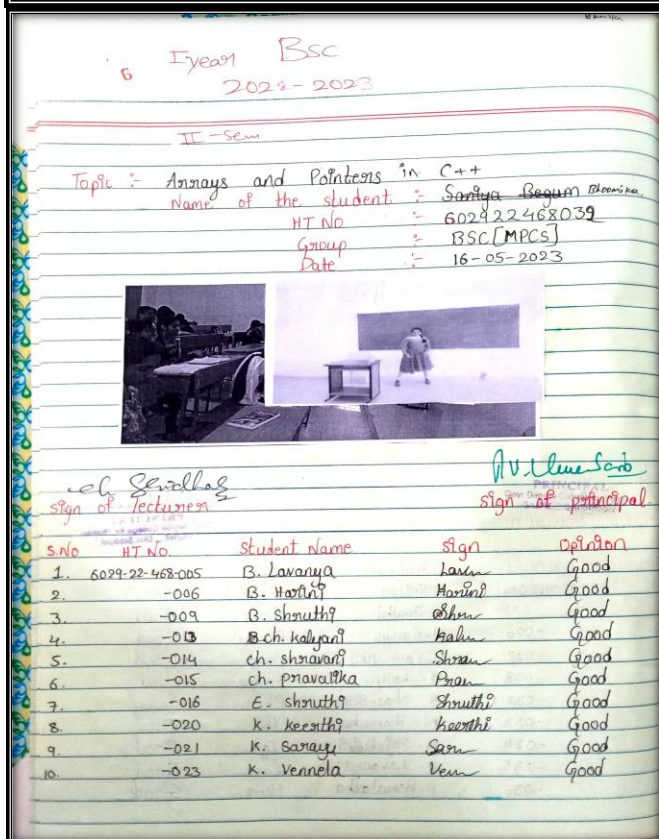 6
I year Bsc
2022-2023
II-Sem
Topic :- Arrays and Pointers in C++
Name of the student :- Saniya Begum Bhoomika
HT NO :- 602922468039
Group :- BSC[MPCs]
Date :- 16-05-2023
sign of lecturer sign of principal
PRINCIPAL
S.No HT No. Student Name sign Opinion
1. 6029-22-468-005 B. Lavanya Good
2. -006 B. Harini Harini Good
3. -009 B. Shruthi Good
4. -013 ch. kalyani Good
5. -014 ch. shravani Shrav Good
6. -015 ch. pravalika Prav Good
7. -016 E. shruthi Shruthi Good
8. -020 K. keerthi keerthi Good
9. -021 K. Sarayu Saru Good
10. -023 K. Vennela Good